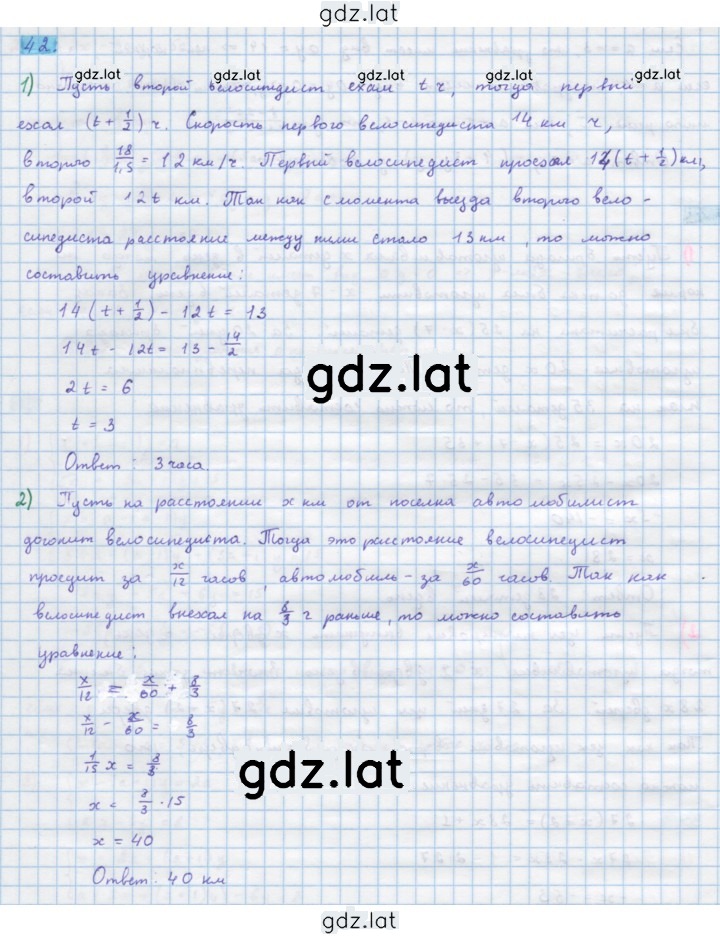 gdz.lat
42.
gdz.lat gdz.lat gdz.lat gdz.lat
1) Пусть второй велосипедист ехал t ч, тогда первый
ехал (t + 1/2) ч. Скорость первого велосипедиста 14 км ч,
второго 18/1,5 = 12 км/ч. Первый велосипедист проехал 14(t + 1/2) км,
второй 12t км. Так как с момента выезда второго вело-
сипедиста расстояние между ними стало 13 км, то можно
составить уравнение:
14(t + 1/2) - 12t = 13
14t - 12t = 13 - 14/2
gdz.lat
2t = 6
t = 3
Ответ: 3 часа.
2) Пусть на расстоянии x км от поселка автомобилист
догонит велосипедиста. Тогда это расстояние велосипедист
проедит за x/12 часов, автомобиль - за x/60 часов. Так как
велосипедист выехал на 8/3 ч раньше, то можно составить
уравнение:
x/12 = x/60 + 8/3
x/12 - x/60 = 8/3
1/15 x = 8/3
gdz.lat
x = 8/3 · 15
x = 40
Ответ: 40 км
gdz.lat